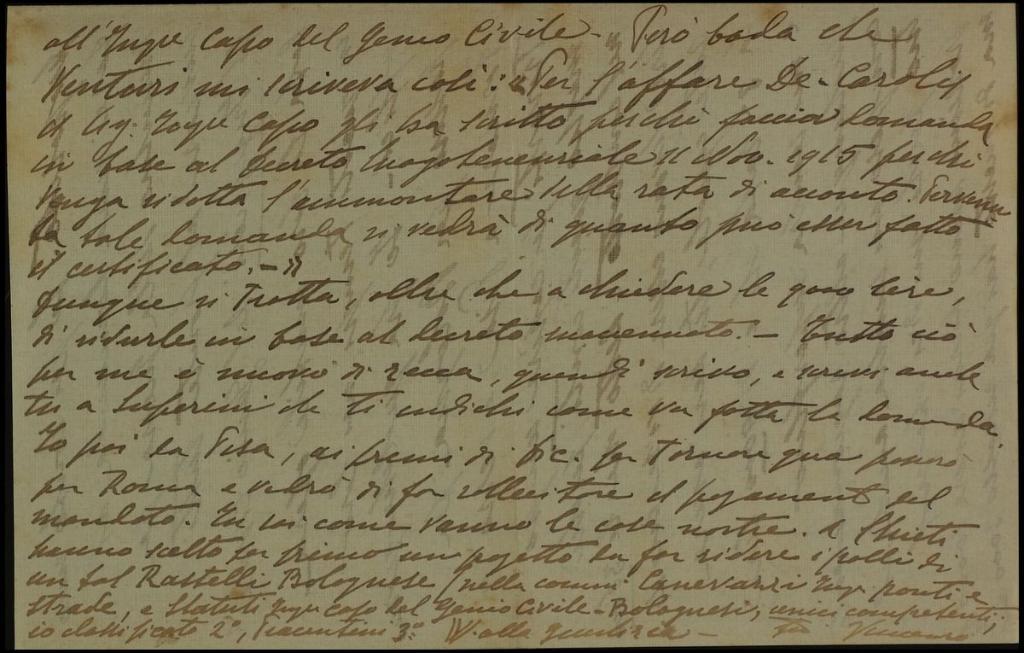 all'Ingre Capo del Genio Civile - Però bada che
Venturi mi scriveva così: "Per l'affare De-Carolis
il Sig. Ingre Capo gli ha scritto perchè faccia domanda
in base al decreto luogotenenziale 11 Nov. 1915 perchè
venga ridotta l'ammontare della rata di acconto. Pervenu
ta tale domanda si vedrà di quanto può esser fatto
il certificato. - "
Dunque si tratta, oltre che a chiedere le lire,
di ridurle in base al decreto menzionato. - Tutto ciò
per me è nuovo di zecca, quindi scrivo, e scrivi anche
tu a Superini che ti indichi come va fatta la domanda.
Io poi da Pisa, ai primi di Dic. per tornare qua passerò
per Roma e vedrò di far sollecitare il pagamento del
mandato. Tu sai come vanno le cose nostre. A Chieti
hanno scelto per primo un progetto da far ridere i polli di
un tal Rastelli Bolognese (nella comm. Canevazzi Ing. ponti e
strade, e Statuti Ingre capo del Genio Civile - Bolognesi, unici competenti;
io classificato 2°, Piacentini 3°. W. alla giustizia - tuo Vincenzo